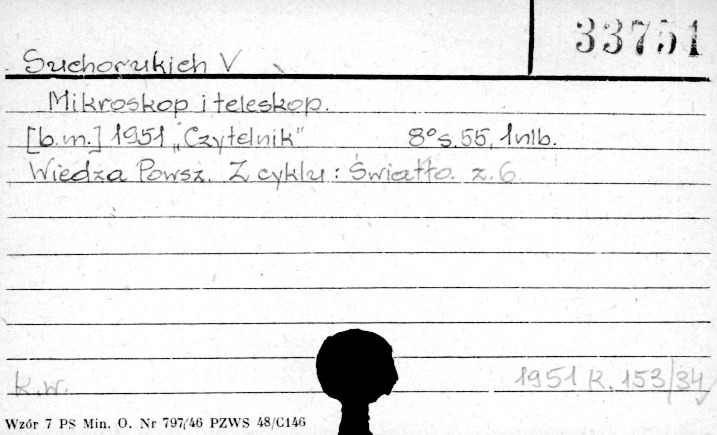 33751
Suchorukich V
Mikroskop i teleskop.
[b.m.] 1951 „Czytelnik" 8° s. 55, 1 nlb.
Wiedza Powsz. Z cyklu: Światło. z. 6
k.w. 1951 K. 153/34
Wzór 7 PS Min. O. Nr 797/46 PZWS 48/C146